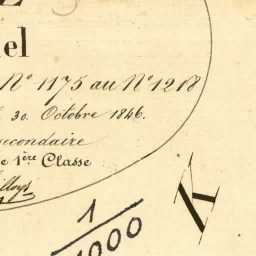 el
N° 1175 au N° 1218
30. Octobre 1846.
econdaire
e 1ère Classe
1/1000
K